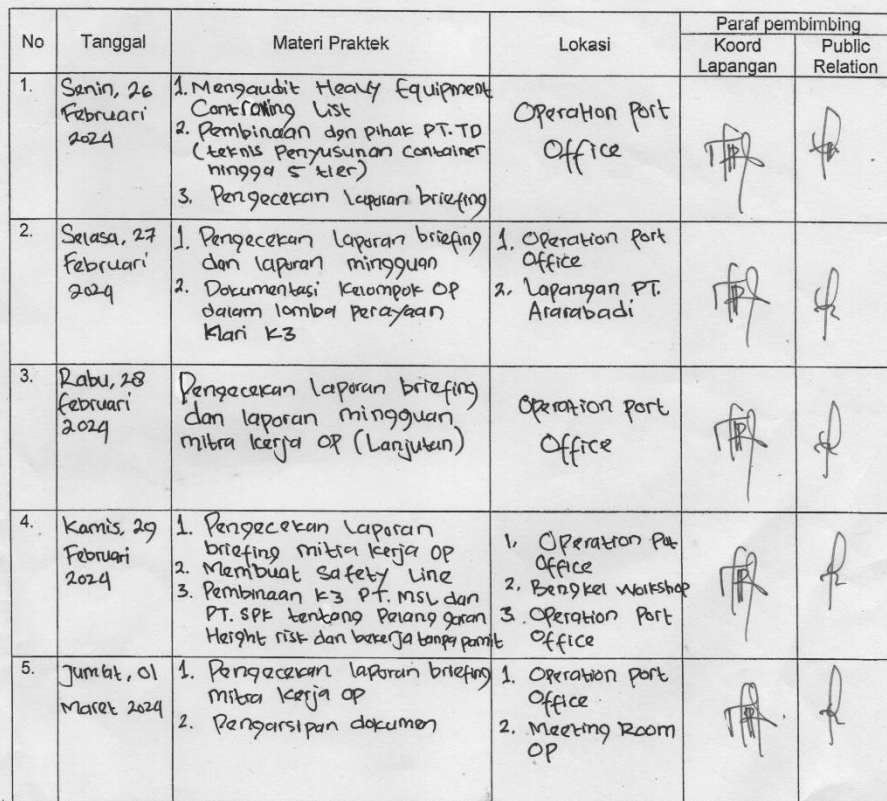 No Tanggal Materi Praktek Lokasi Paraf pembimbing
Koord Lapangan Public Relation
1. Senin, 26 Februari 2024
1. Mengaudit Heavy Equipment
Controlling List
2. Pembinaan dgn pihak PT. TD
(teknis Penyusunan Container
hingga 5 tier)
3. Pengecekan Laporan briefing
Operation Port
Office
2. Selasa, 27
Februari
2024
1. Pengecekan laporan briefing
dan laporan mingguan
2. Dokumentasi Kelompok OP
dalam lomba perayaan
Hari K3
1. Operation Port
Office
2. Lapangan PT.
Ararabadi
3. Rabu, 28
Februari
2024
Pengecekan Laporan briefing
dan laporan mingguan
mitra kerja OP (Lanjutan)
Operation port
Office
4. Kamis, 29
Februari
2024
1. Pengecekan Laporan
briefing mitra kerja OP
2. Membuat Safety Line
3. Pembinaan K3 PT. MSL dan
PT. SPK tentang Pelanggaran
Height risk dan bekerja tanpa pamit
1. Operation
Office
2. Bengkel Workshop
3. Operation Port
Office
5. Jumat, 01
Maret 2024
1. Pengecekan laporan briefing
mitra kerja OP
2. Pengarsipan dokumen
1. Operation port
Office
2. Meeting Room
OP